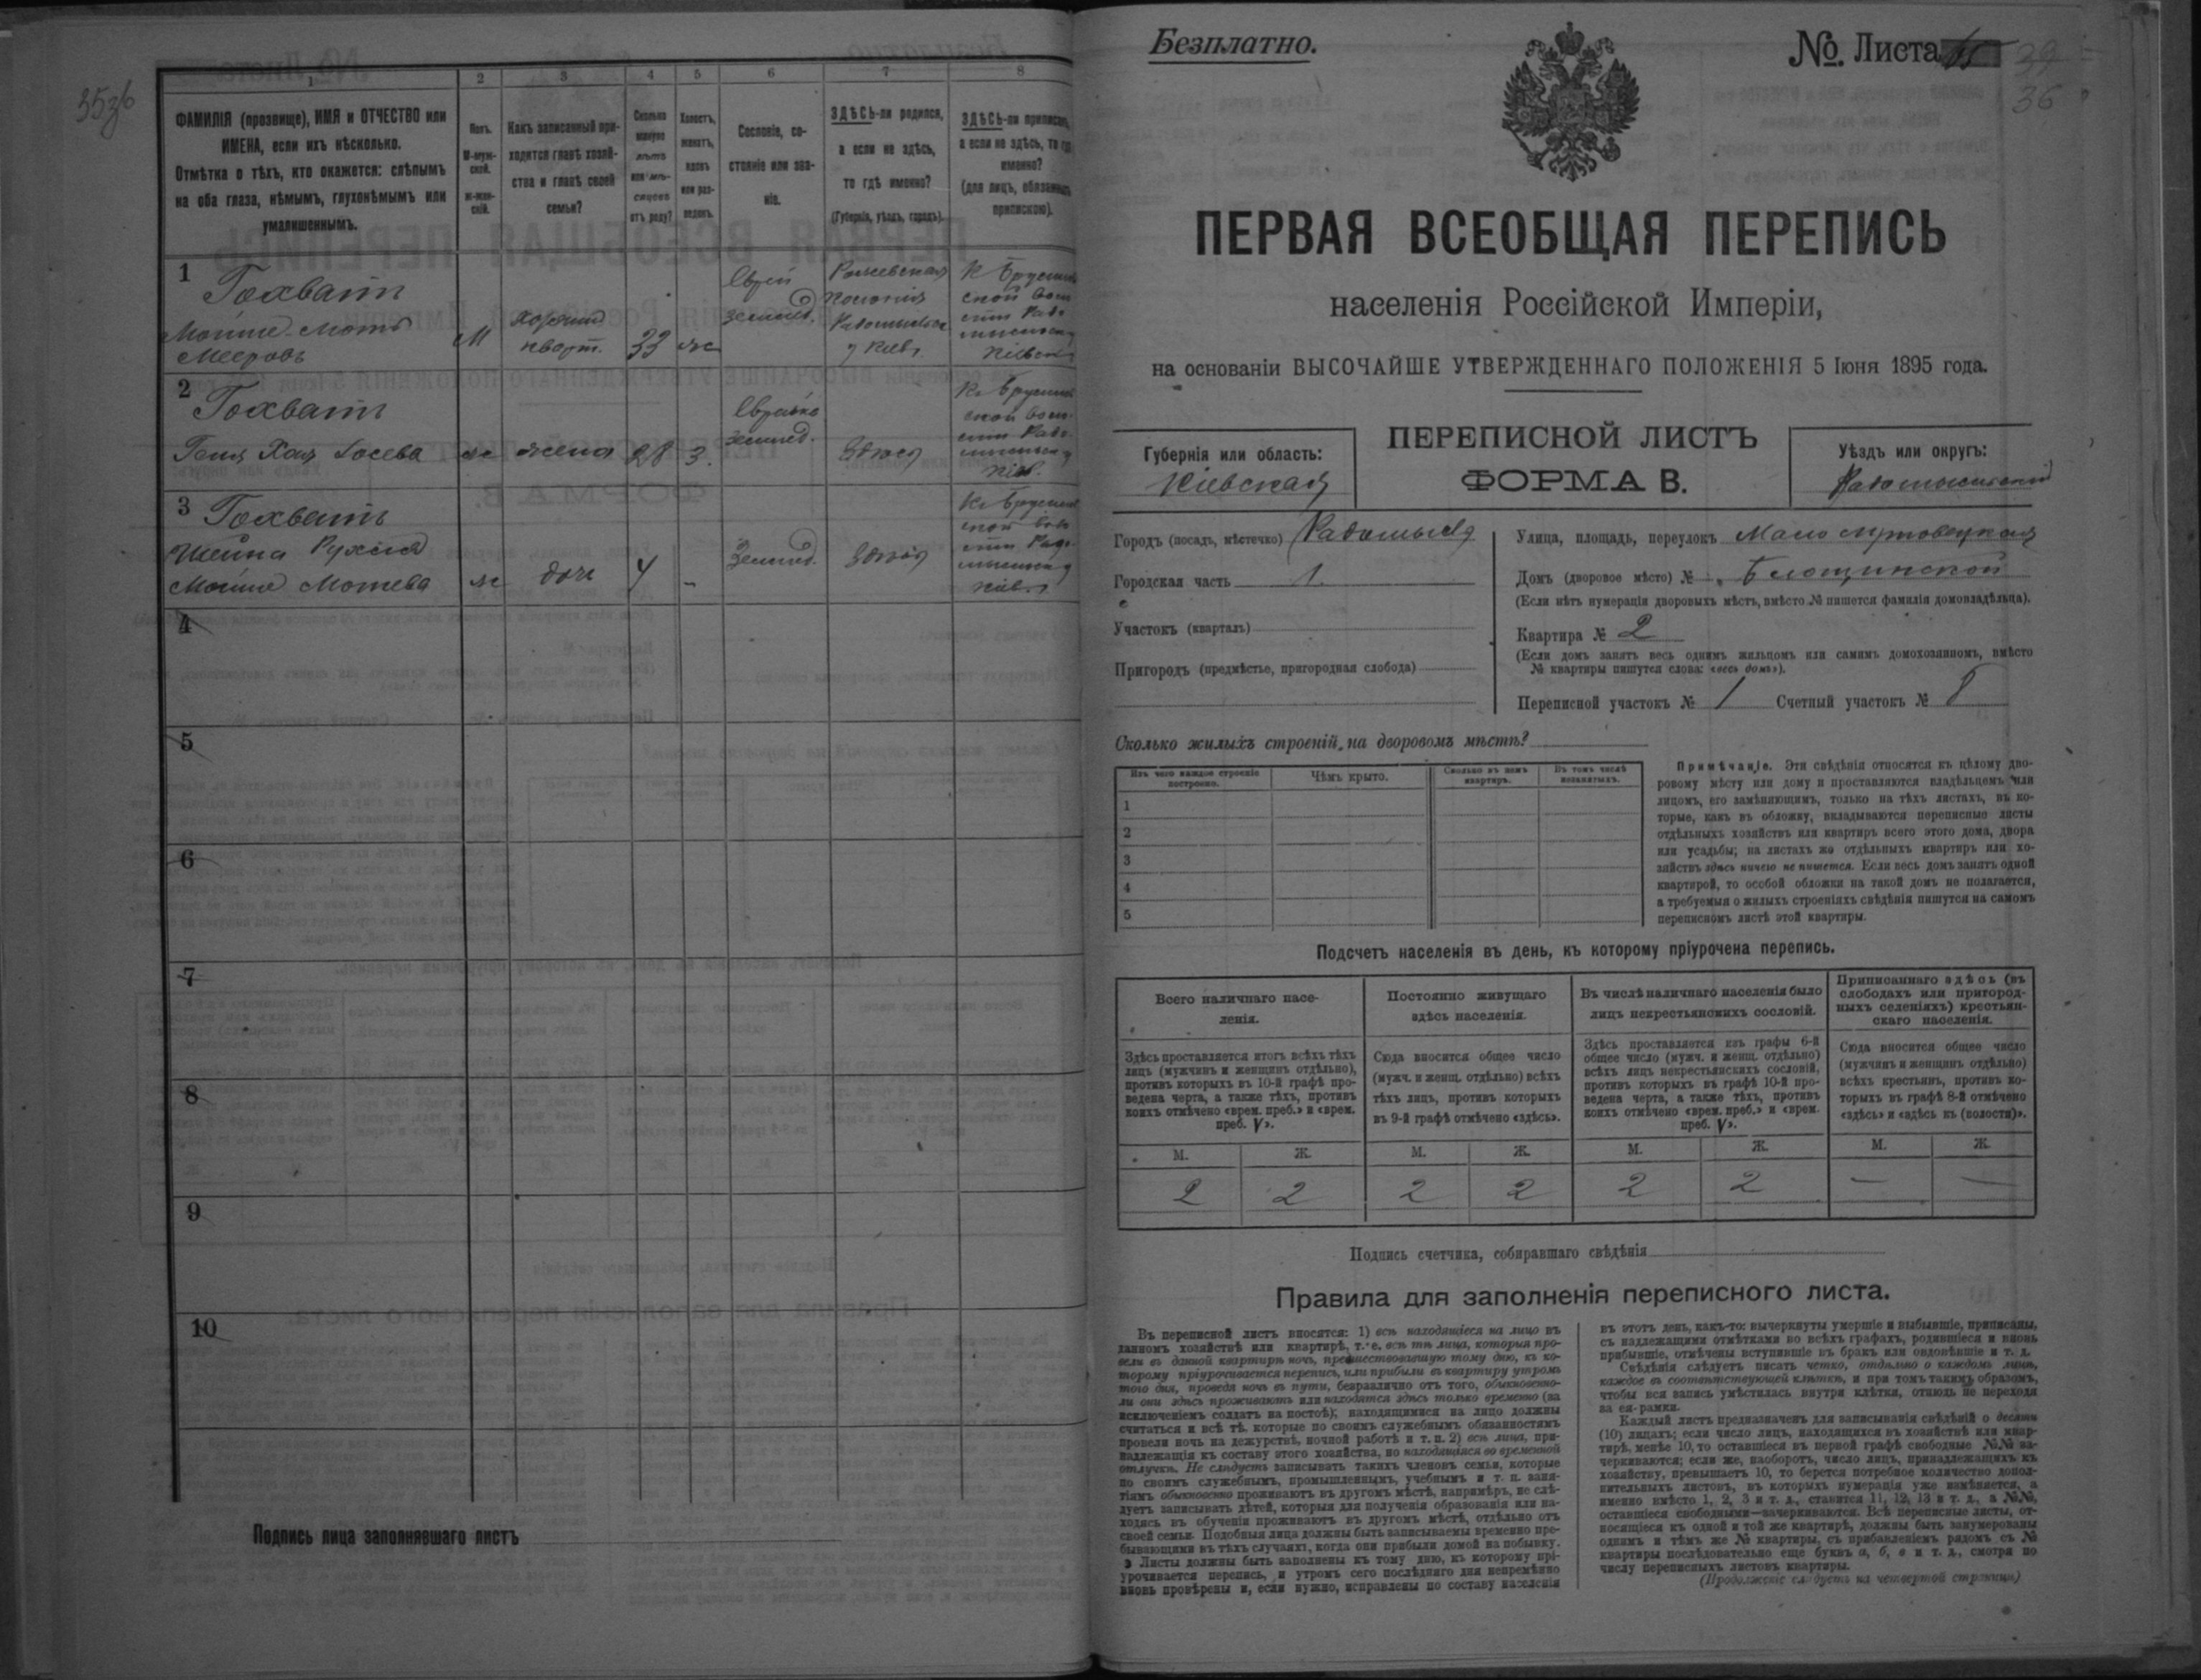 35об
1
2
3
4
5
6
7
8
ФАМИЛІЯ (прозвище), ИМЯ и ОТЧЕСТВО или
ИМЕНА, если ихъ нѣсколько.
Отмѣтка о тѣхъ, кто окажется: слѣпымъ
на оба глаза, нѣмымъ, глухонѣмымъ или
умалишеннымъ.
Полъ.
М-муж-
ской.
Ж-жен-
скій.
Какъ записанный при-
ходится главѣ хозяй-
ства и главѣ своей
семьи?
Сколько
минуло
лѣтъ
или мѣ-
сяцевъ
отъ роду?
Холостъ,
женатъ,
вдовъ
или раз-
веденъ.
Сословіе, со-
стояніе или зва-
ніе.
ЗДѢСЬ-ли родился,
а если не здѣсь,
то гдѣ именно?
(Губернія, уѣздъ, городъ).
ЗДѢСЬ-ли приписанъ,
а если не здѣсь, то гдѣ
именно?
(для лицъ, обязанныхъ
припискою).
1
Гохватъ
Мойше Мотъ
Мееровъ
М
хозяинъ
кварт.
33
же
Еврей
землед.
колонія
2
Гохватъ
Хая Іосева
ж
жена
28
з.
Еврейка
землед.
Здѣсь
3
Гохватъ
Шейна Рухля
Мойше Мотева
ж
дочь
4
-
Землед.
Здѣсь
4
5
6
7
8
9
10
Подпись лица заполнявшаго листъ
Безплатно.
№ Листа
39
36
ПЕРВАЯ ВСЕОБЩАЯ ПЕРЕПИСЬ
населенія Россійской Имперіи,
на основаніи ВЫСОЧАЙШЕ УТВЕРЖДЕННАГО ПОЛОЖЕНІЯ 5 Іюня 1895 года.
Губернія или область:
Кіевская
ПЕРЕПИСНОЙ ЛИСТЪ
ФОРМА В.
Уѣздъ или округъ:
Радомысльскій
Городъ (посадъ, мѣстечко) Радомысль
Городская часть 1.
Участокъ (кварталъ)
Пригородъ (предмѣстье, пригородная слобода)
Улица, площадь, переулокъ
Домъ (дворовое мѣсто) № Блощинской
(Если нѣтъ нумераціи дворовыхъ мѣстъ, вмѣсто № пишется фамилія домовладѣльца).
Квартира № 2
(Если домъ занятъ весь однимъ жильцомъ или самимъ домохозяиномъ, вмѣсто
№ квартиры пишутся слова: «весь домъ»).
Переписной участокъ № 1 Счетный участокъ № 8
Сколько жилыхъ строеній на дворовомъ мѣстѣ?
Изъ чего каждое строеніе
построено.
Чѣмъ крыто.
Сколько въ немъ
квартиръ.
Въ томъ числѣ
незанятыхъ.
1
2
3
4
5
Примѣчаніе. Эти свѣдѣнія относятся къ цѣлому дво-
ровому мѣсту или дому и проставляются владѣльцемъ или
лицомъ, его замѣняющимъ, только на тѣхъ листахъ, въ ко-
торые, какъ въ обложку, вкладываются переписные листы
отдѣльныхъ хозяйствъ или квартиръ всего этого дома, двора
или усадьбы; на листахъ же отдѣльныхъ квартиръ или хо-
зяйствъ здѣсь ничего не пишется. Если весь домъ занятъ одной
квартирой, то особой обложки на такой домъ не полагается,
а требуемыя о жилыхъ строеніяхъ свѣдѣнія пишутся на самомъ
переписномъ листѣ этой квартиры.
Подсчетъ населенія въ день, къ которому пріурочена перепись.
Всего наличнаго насе-
ленія.
Постоянно живущаго
здѣсь населенія.
Въ числѣ наличнаго населенія было
лицъ некрестьянскихъ сословій.
Приписаннаго здѣсь (въ
слободахъ или пригород-
ныхъ селеніяхъ) крестьян-
скаго населенія.
Здѣсь проставляется итогъ всѣхъ тѣхъ
лицъ (мужчинъ и женщинъ отдѣльно),
противъ которыхъ въ 10-й графѣ про-
ведена черта, а также тѣхъ, противъ
коихъ отмѣчено «врем. преб.» и «врем.
преб. V».
Сюда вносится общее число
(мужч. и женщ. отдѣльно) всѣхъ
тѣхъ лицъ, противъ которыхъ
въ 9-й графѣ отмѣчено «здѣсь».
Здѣсь проставляется изъ графы 6-й
общее число (мужч. и женщ. отдѣльно)
всѣхъ лицъ некрестьянскихъ сословій,
противъ которыхъ въ графѣ 10-й про-
ведена черта, а также тѣхъ, противъ
коихъ отмѣчено «врем. преб.» и «врем.
преб. V».
Сюда вносится общее число
(мужчинъ и женщинъ отдѣльно)
всѣхъ крестьянъ, противъ ко-
торыхъ въ графѣ 8-й отмѣчено
«здѣсь» и «здѣсь къ (волости)».
М. Ж. М. Ж. М. Ж. М. Ж.
2 2 2 2 2 2 — —
Подпись счетчика, собиравшаго свѣдѣнія
Правила для заполненія переписного листа.
Въ переписной листъ вносятся: 1) всѣ находящіеся на лицо въ
данномъ хозяйствѣ или квартирѣ, т. е. всѣ тѣ лица, которыя про-
вели въ данной квартирѣ ночь, предшествовавшую тому дню, къ ко-
торому пріурочивается перепись, или прибыли въ квартиру утромъ
того дня, проведя ночь въ пути, безразлично отъ того, обыкновенно-
ли они здѣсь проживаютъ или находятся здѣсь только временно (за
исключеніемъ солдатъ на постоѣ); находящимися на лицо должны
считаться и всѣ тѣ, которые по своимъ служебнымъ обязанностямъ
провели ночь на дежурствѣ, ночной работѣ и т. п. 2) всѣ лица, при-
надлежащія къ составу этого хозяйства, но находящіяся во временной
отлучкѣ. Не слѣдуетъ записывать такихъ членовъ семьи, которые
по своимъ служебнымъ, промышленнымъ, учебнымъ и т. п. заня-
тіямъ обыкновенно проживаютъ въ другомъ мѣстѣ, напримѣръ, не слѣ-
дуетъ записывать дѣтей, которыя для полученія образованія или на-
ходясь въ обученіи проживаютъ въ другомъ мѣстѣ, отдѣльно отъ
своей семьи. Подобныя лица должны быть записываемы временно пре-
бывающими въ тѣхъ случаяхъ, когда они прибыли домой на побывку.
Листы должны быть заполнены къ тому дню, къ которому прі-
урочивается перепись, и утромъ сего послѣдняго дня непремѣнно
вновь провѣрены и, если нужно, исправлены по составу населенія
въ этотъ день, какъ-то: вычеркнуты умершіе и выбывшіе, приписаны,
съ надлежащими отмѣтками во всѣхъ графахъ, родившіеся и вновь
прибывшіе, отмѣчены вступившіе въ бракъ или овдовѣвшіе и т. д.
Свѣдѣнія слѣдуетъ писать четко, отдѣльно о каждомъ лицѣ,
каждое въ соотвѣтствующей клѣткѣ, и при томъ такимъ образомъ,
чтобы вся запись умѣстилась внутри клѣтки, отнюдь не переходя
за ея рамки.
Каждый листъ предназначенъ для записыванія свѣдѣній о десяти
(10) лицахъ; если число лицъ, находящихся въ хозяйствѣ или квар-
тирѣ, менѣе 10, то оставшіеся въ первой графѣ свободные №№ за-
черкиваются; если же, наоборотъ, число лицъ, принадлежащихъ къ
хозяйству, превышаетъ 10, то берется потребное количество допол-
нительныхъ листовъ, въ которыхъ нумерація уже измѣняется, а
именно вмѣсто 1, 2, 3 и т. д., ставится 11, 12, 13 и т. д., а №№,
оставшіеся свободными—зачеркиваются. Всѣ переписные листы, от-
носящіеся къ одной и той же квартирѣ, должны быть занумерованы
однимъ и тѣмъ же № квартиры, съ прибавленіемъ рядомъ съ №
квартиры послѣдовательно еще буквъ а, б, в и т. д., смотря по
числу переписныхъ листовъ квартиры.
(Продолженіе слѣдуетъ на четвертой страницѣ)